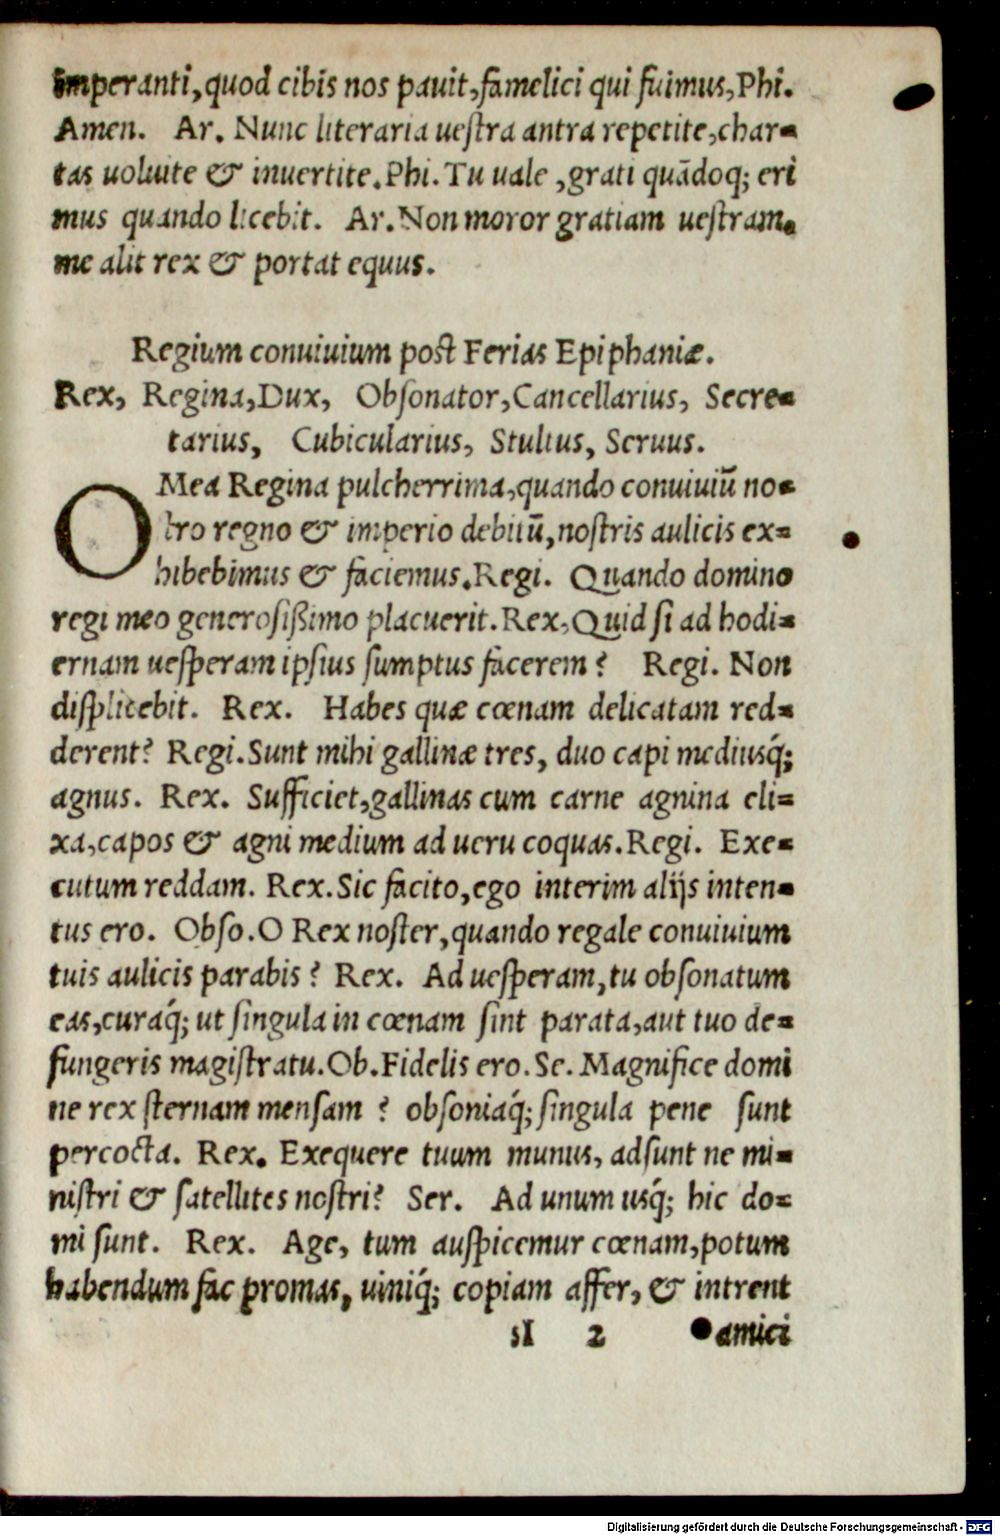 imperanti, quod cibis nos pauit, famelici qui fuimus, Phi.
Amen. Ar. Nunc literaria ueſtra antra repetite, char-
tas uoluite & inuertite. Phi. Tu uale, grati quādoq; eri
mus quando licebit. Ar. Non moror gratiam ueſtram.
me alit rex & portat equus.
Regium conuiuium poſt Ferias Epiphaniæ.
Rex, Regina, Dux, Obſonator, Cancellarius, Secre-
tarius, Cubicularius, Stultus, Seruus.
O Mea Regina pulcherrima, quando conuiuiū no-
ſtro regno & imperio debitū, noſtris aulicis ex-
hibebimus & faciemus. Regi. Quando domino
regi meo generoſiſsimo placuerit. Rex, Quid ſi ad hodi-
ernam ueſperam ipſius ſumptus facerem? Regi. Non
diſplicebit. Rex. Habes quæ cœnam delicatam red-
derent? Regi. Sunt mihi gallinæ tres, duo capi mediusq́;
agnus. Rex. Sufficiet, gallinas cum carne agnina eli-
xa, capos & agni medium ad ueru coquas. Regi. Exe-
cutum reddam. Rex. Sic facito, ego interim alijs inten-
tus ero. Obſo. O Rex noſter, quando regale conuiuium
tuis aulicis parabis? Rex. Ad ueſperam, tu obſonatum
eas, curaq́; ut ſingula in cœnam ſint parata, aut tuo de-
fungeris magiſtratu. Ob. Fidelis ero. Se. Magnifice domi
ne rex ſternam menſam? obſoniaq́; ſingula pene ſunt
percocta. Rex. Exequere tuum munus, adſunt ne mi-
niſtri & ſatellites noſtri? Ser. Ad unum uſq́; hic do-
mi ſunt. Rex. Age, tum auſpicemur cœnam, potum
habendum fac promas, uiniq́; copiam affer, & intrent
I 2 amici
Digitalisierung gefördert durch die Deutsche Forschungsgemeinschaft - DFG